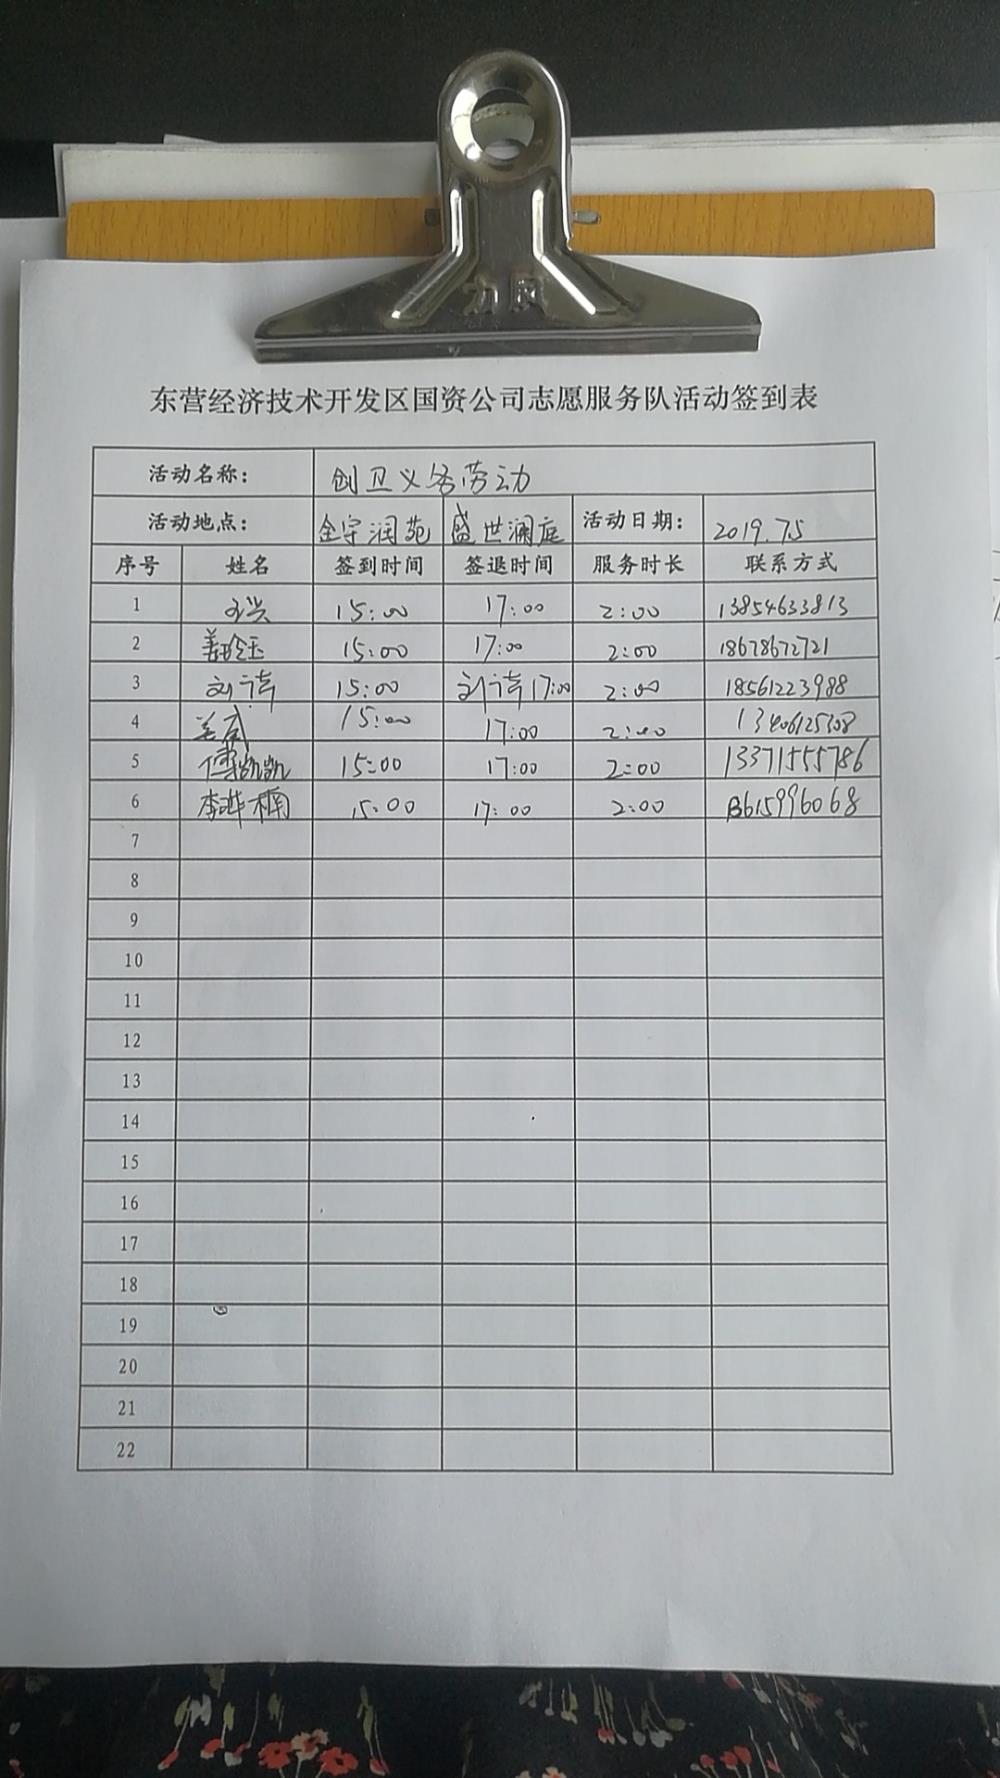 东营经济技术开发区国资公司志愿服务队活动签到表
活动名称： 创卫义务劳动
活动地点： 金宇润苑 盛世澜庭 活动日期： 2019.7.5
序号 姓名 签到时间 签退时间 服务时长 联系方式
1 15:00 17:00 2:00 13854633813
2 15:00 17:00 2:00 18678672721
3 刘 15:00 刘 17:00 2:00 18561223988
4 15:00 17:00 2:00 13406125308
5 傅凯凯 15:00 17:00 2:00 13371555786
6 李 楠 15:00 17:00 2:00 13615996068
7
8
9
10
11
12
13
14
15
16
17
18
19
20
21
22